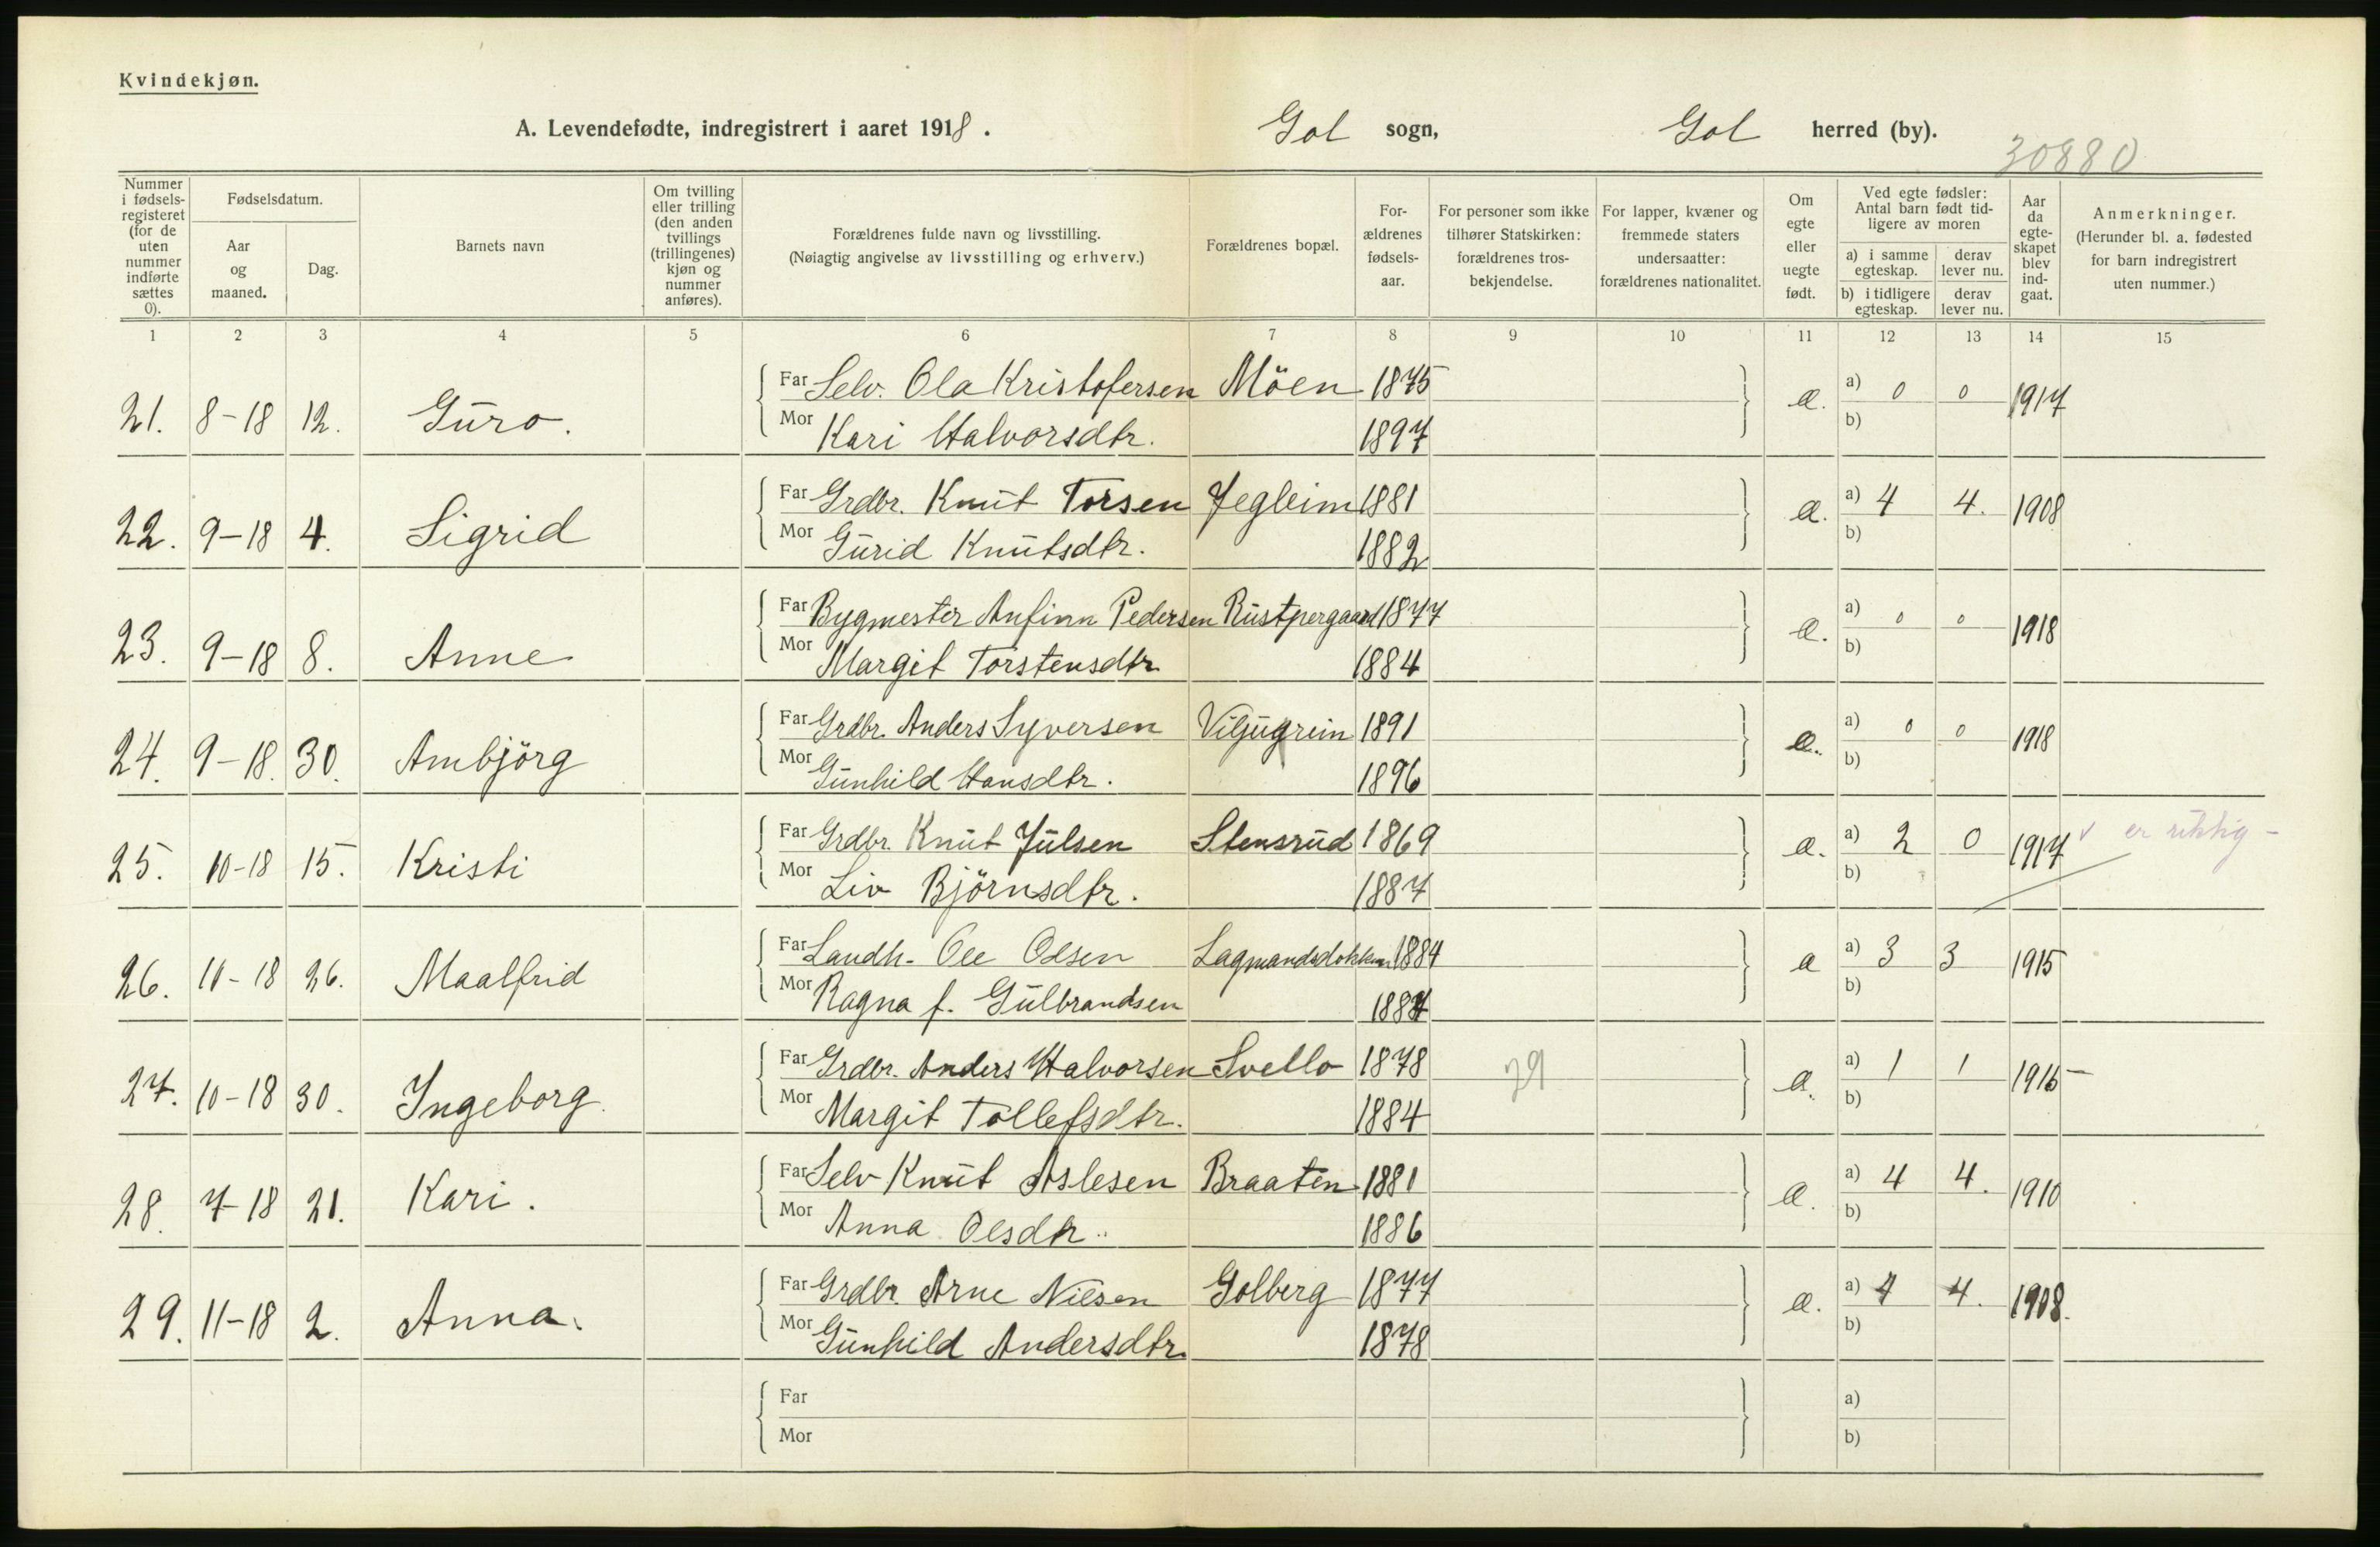 Kvindekjøn.
A. Levendefødte, indregistrert i aaret 1918. Gol sogn, Gol herred (by).
30880
Nummer i fødselsregisteret (for de uten nummer indførte sættes 0).
Fødselsdatum.
Aar og maaned.
Dag.
Barnets navn
Om tvilling eller trilling (den anden tvillings (trillingenes) kjøn og nummer anføres).
Forældrenes fulde navn og livsstilling.
(Nøiagtig angivelse av livsstilling og erhverv.)
Forældrenes bopæl.
For-ældrenes fødsels-aar.
For personer som ikke tilhører Statskirken: forældrenes tros-bekjendelse.
For lapper, kvæner og fremmede staters undersaatter: forældrenes nationalitet.
Om egte eller uegte født.
Ved egte fødsler: Antal barn født tid-ligere av moren
a) i samme egteskap.
derav lever nu.
b) i tidligere egteskap.
derav lever nu.
Aar da egte-skapet blev ind-gaat.
Anmerkninger.
(Herunder bl. a. fødested for barn indregistrert uten nummer.)
1 2 3 4 5 6 7 8 9 10 11 12 13 14 15
Far Selv. Ola Kristofersen Möen 1875
21. 8-18 12. Guro. e. a) 0 0 1917
Mor Kari Halvorsdtr. 1897 b)
Far Grdbr. Knut Torsen Jegleim 1881
22. 9-18 4. Sigrid e. a) 4 4. 1908
Mor Gurid Knutsdtr. 1882 b)
Far Bygmester Anfinn Pedersen Rustpergaard 1877
23. 9-18 8. Anne e. a) 0 0 1918
Mor Margit Torstensdtr. 1884 b)
Far Grdbr. Anders Syversen Viljugrein 1891
24. 9-18. 30. Ambjörg e. a) 0 0 1918
Mor Gunhild Hansdtr. 1896 b)
Far Grdbr. Knut Julsen Stensrud 1869
25. 10-18 15. Kristi e. a) 2 0 1917 v er riktig -
Mor Liv Björnsdtr. 1887 b)
Far Landh. Ole Olsen 1884
26. 10-18 26. Maalfrid e a) 3 3 1915
Mor Ragna f. Gulbrandsen 1887 b)
Far Grdbr. Anders Halvorsen Svello 1878 29
27. 10-18 30. Ingeborg. e. a) 1 1 1916 -
Mor Margit Tollefsdtr. 1884 b)
Far Selv Knut Aslesen Braaten 1881
28. 7-18 21. Kari. e. a) 4 4. 1910
Mor Anna Olsdtr. 1886 b)
Far Grdbr. Arne Nilsen Golberg 1877
29. 11-18 2. Anna. e. a) 4 4. 1908.
Mor Gunhild Andersdtr. 1878 b)
Far a)
Mor b)